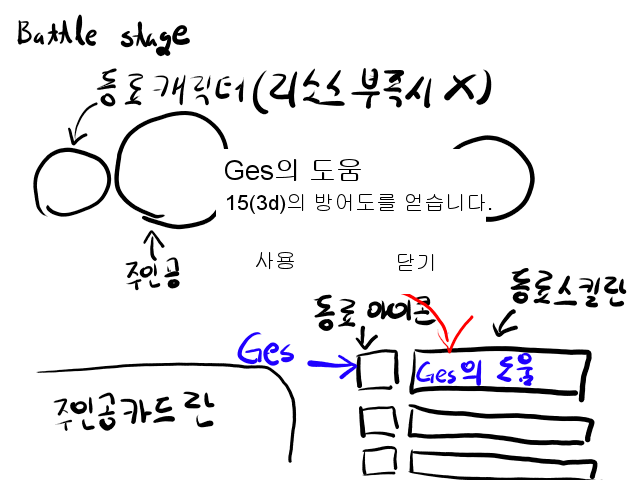 Battle stage
동료캐릭터(리소스 부족시 X)
Ges의 도움
15(3d)의 방어도를 얻습니다.
주인공
사용
닫기
동료스킬란
동료 아이콘
Ges
Ges의 도움
주인공카드란